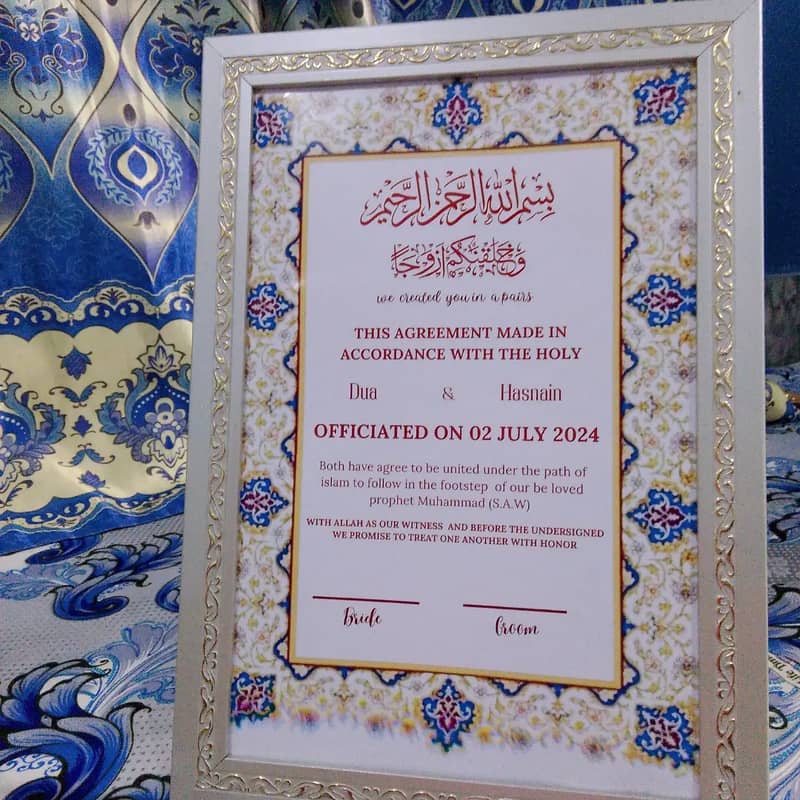 بِسْمِ اللهِ الرَّحْمٰنِ الرَّحِيْمِ
وَخَلَقْنَكُمْ اَزْوَجًا
we created you in a pairs
THIS AGREEMENT MADE IN
ACCORDANCE WITH THE HOLY
Dua & Hasnain
OFFICIATED ON 02 JULY 2024
Both have agree to be united under the path of
islam to follow in the footstep of our be loved
prophet Muhammad (S.A.W)
WITH ALLAH AS OUR WITNESS AND BEFORE THE UNDERSIGNED
WE PROMISE TO TREAT ONE ANOTHER WITH HONOR
Bride Groom